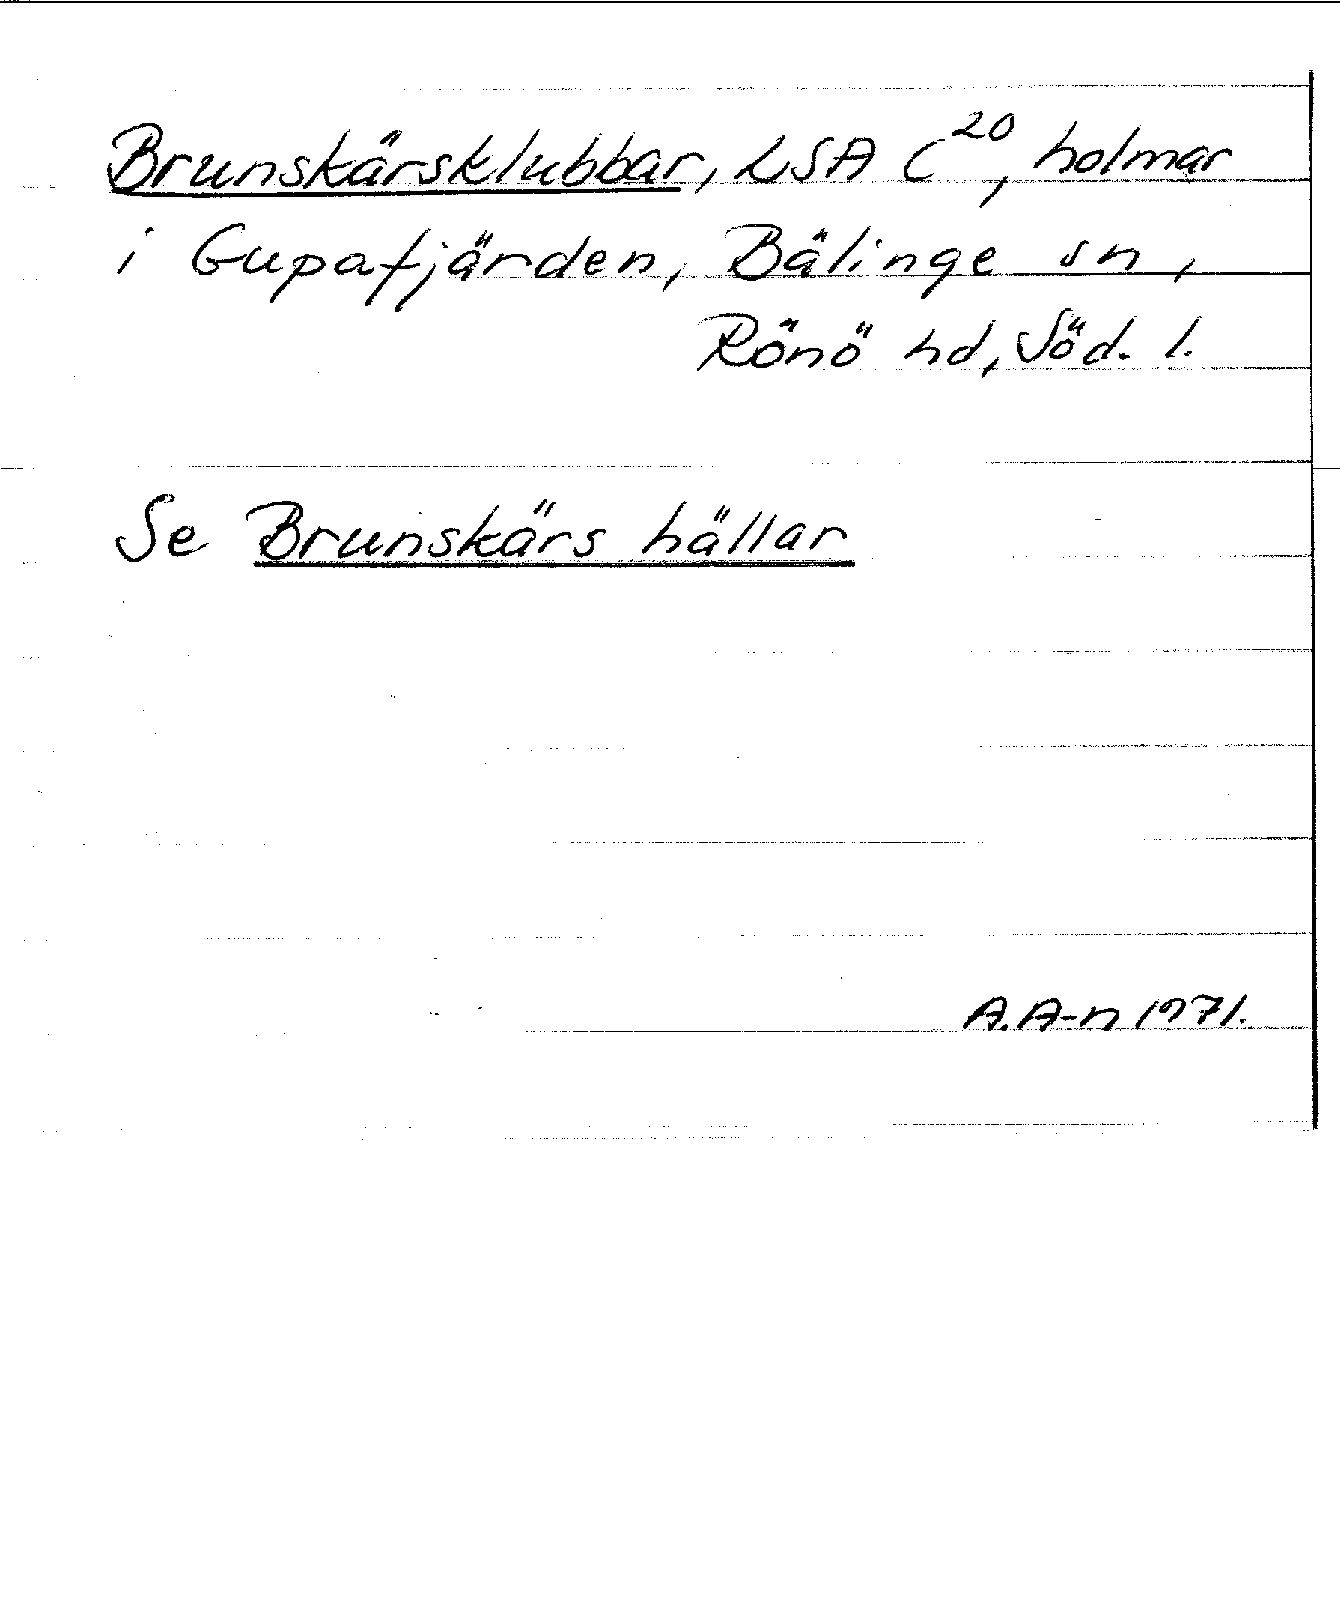 Brunskärsklubbar, LSA C²⁰, holmar
i Gupafjärden, Bälinge sn,
Rönö hd, Söd. l.
Se Brunskärs hällar
A.A-n 1971.